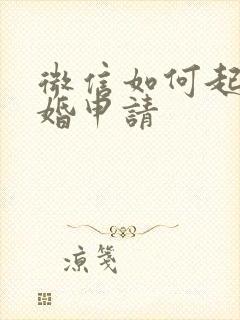 微信如何起
婚申請
涼箋